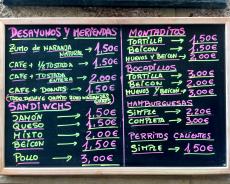 DESAYUNOS Y MERIENDAS
ZUMO DE NARANJA NATURAL → 1,50€
CAFE + ½ TOSTADA → 1,50€
CAFE + TOSTADA ENTERA → 2,00€
CAFE + DONUTS → 1,50€
SANDIWCHS
JAMÓN → 1,50€
QUESO → 1,50€
MIXTO → 2,00€
BEICON → 1,50€
POLLO → 3,00€
MONTADITOS
TORTILLA → 1,50€
BEICON → 1,50€
HUEVOS Y BEICON → 2,00€
BOCADILLOS
TORTILLA → 3,00€
BEICON → 3,00€
HUEVOS Y BEICON
HAMBURGUESAS
SIMPLE → 2,20€
COMPLETA → 3,00€
PERRITOS CALIENTES
SIMPLE → 1,50€